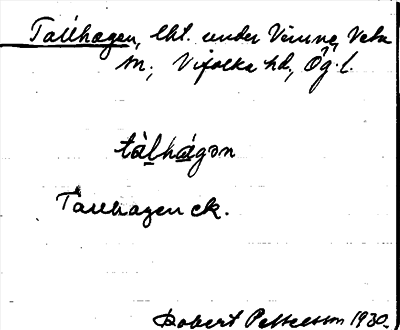 Tallhagen, lht. under Veinne, Veta
sn., Vifolka hd, Ög. l.
tàlhágən
Tallhagen ek.
Robert Pettersson 1930.